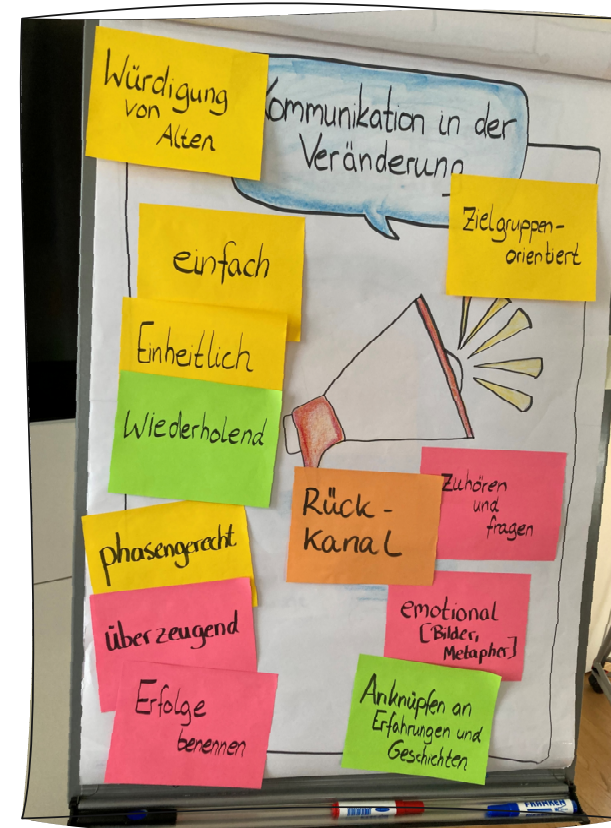 Würdigung
von
Alten
Kommunikation in der
Veränderung
Zielgruppen-
orientiert
einfach
Einheitlich
Wiederholend
Rück-
Kanal
Zuhören
und
fragen
phasengerecht
überzeugend
emotional
[Bilder,
Metapher]
Erfolge
benennen
Anknüpfen an
Erfahrungen und
Geschichten
FRANKEN